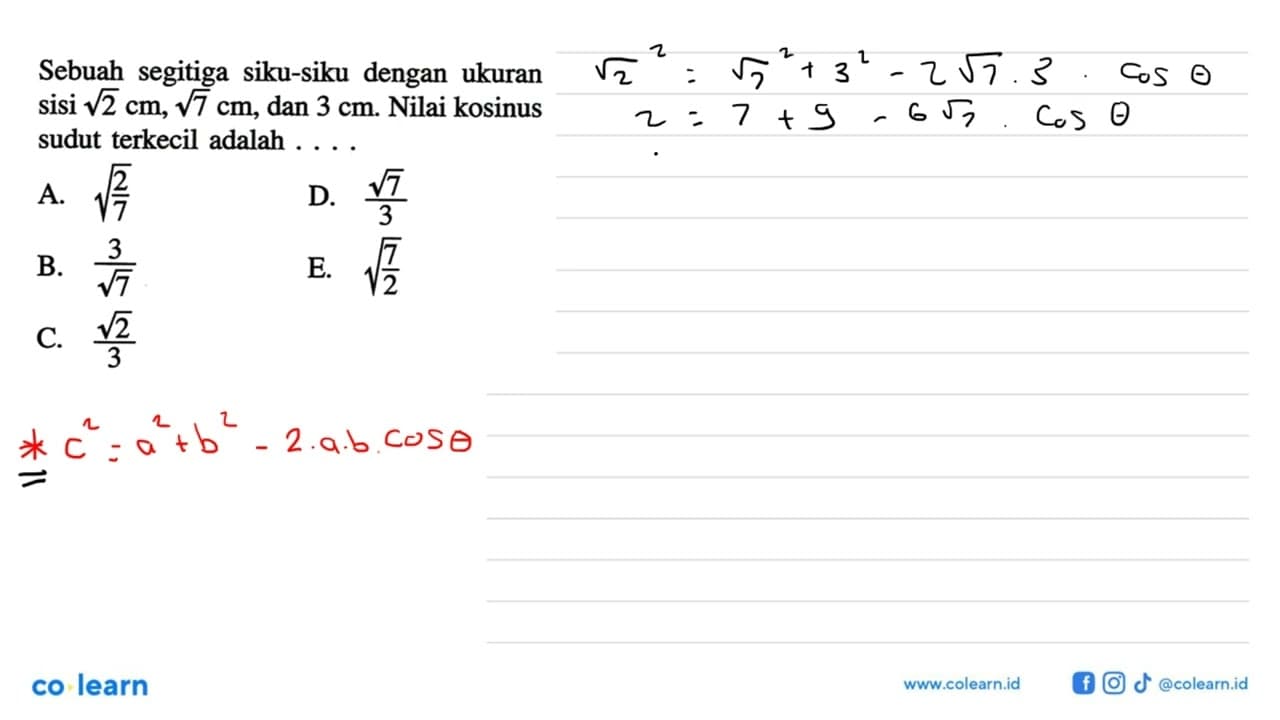 Sebuah segitiga siku-siku dengan ukuran
sisi √2 cm, √7 cm, dan 3 cm. Nilai kosinus
sudut terkecil adalah . . . .
A. √(2/7)
B. 3/√7
C. √2/3
D. √7/3
E. √(7/2)
* c² = a² + b² - 2.a.b.cos θ
√2² = √7² + 3² - 2√7 . 3 . cos θ
2 = 7 + 9 - 6√7 . cos θ
co learn
www.colearn.id
@colearn.id